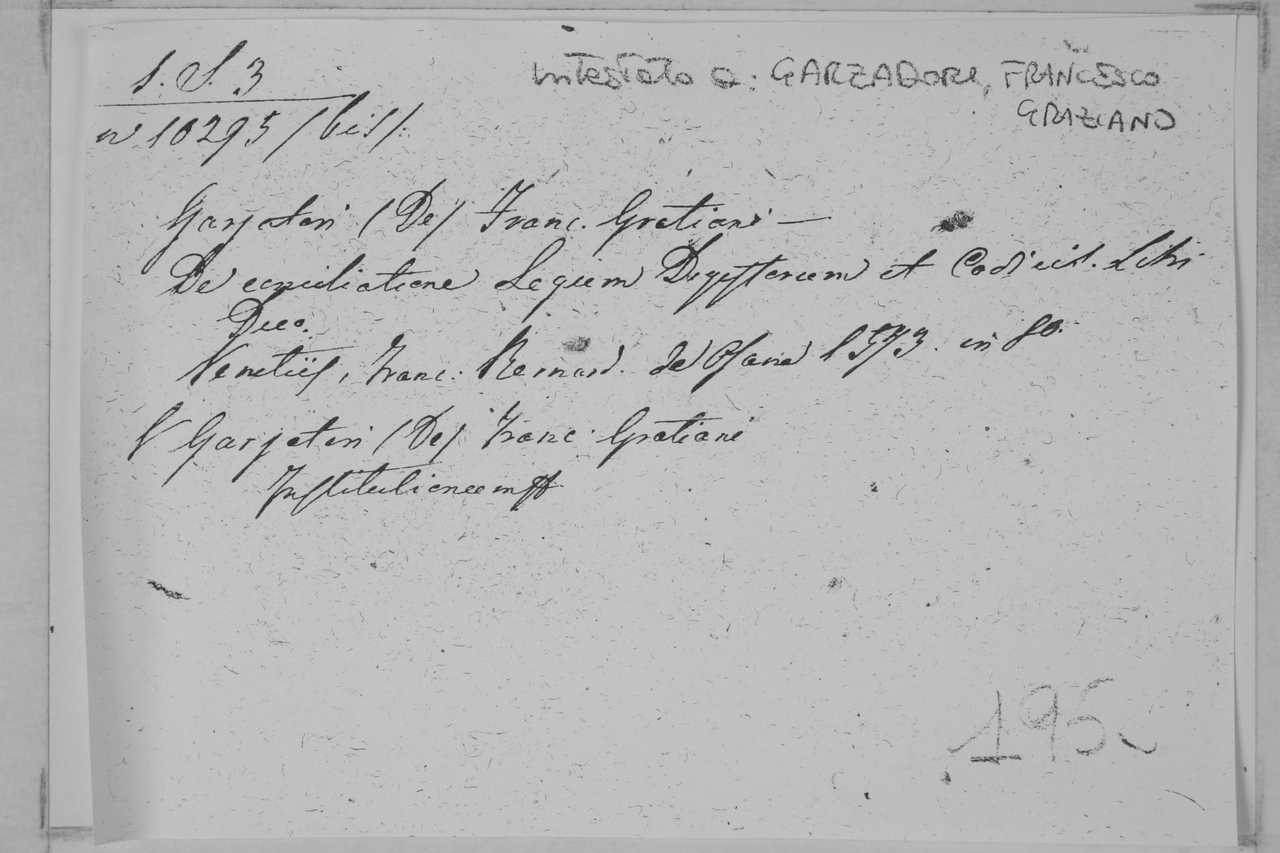 S. S. 3
nº 10295 /bis/.
intestato a: GARZADORI, FRANCESCO
GRAZIANO
Garzatori (De) Franc. Gratiani —
De conciliatione Legum Digestorum et Codicis. Libri
Duo.
Venetiis, Franc. de 1573. in 8º.
Garzatori (De) Franc. Gratiani
Institutionum
195